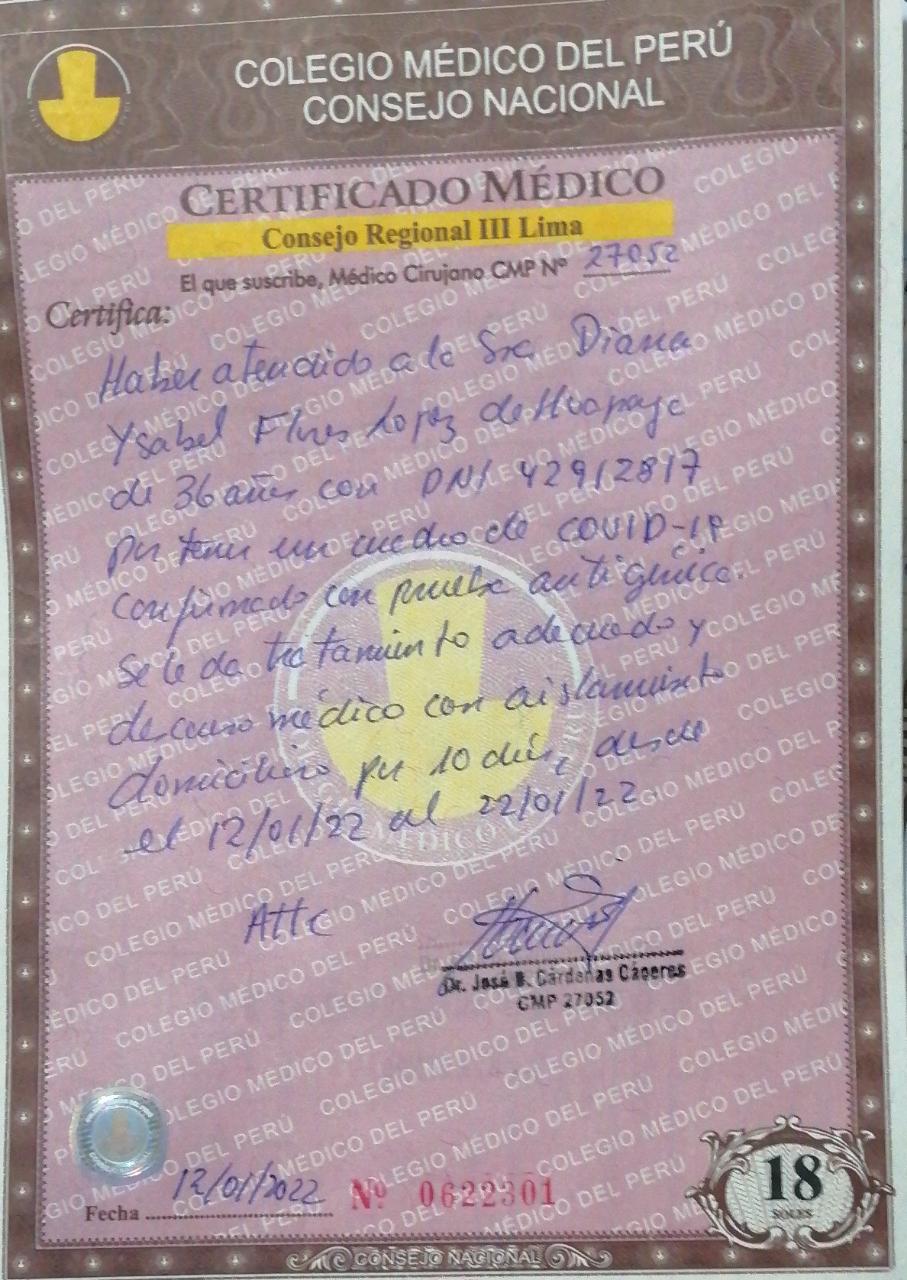 COLEGIO MÉDICO DEL PERÚ
CONSEJO NACIONAL
CERTIFICADO MÉDICO
Consejo Regional III Lima
El que suscribe, Médico Cirujano CMP Nº 27052
Certifica:
Haber atendido a la Sra Diana
Ysabel Flores Lopez de Huapaya
de 36 años con DNI 42912817
por tener un cuadro de COVID-19
confirmado con prueba antigénica.
Se le da tratamiento adecuado y
descanso médico con aislamiento
domicilio por 10 días, desde
el 12/01/22 al 22/01/22
Atte
Dr. José B. Cárdenas Cáceres
CMP 27052
Fecha 12/01/2022 Nº 0622301
18
SOLES
CONSEJO NACIONAL